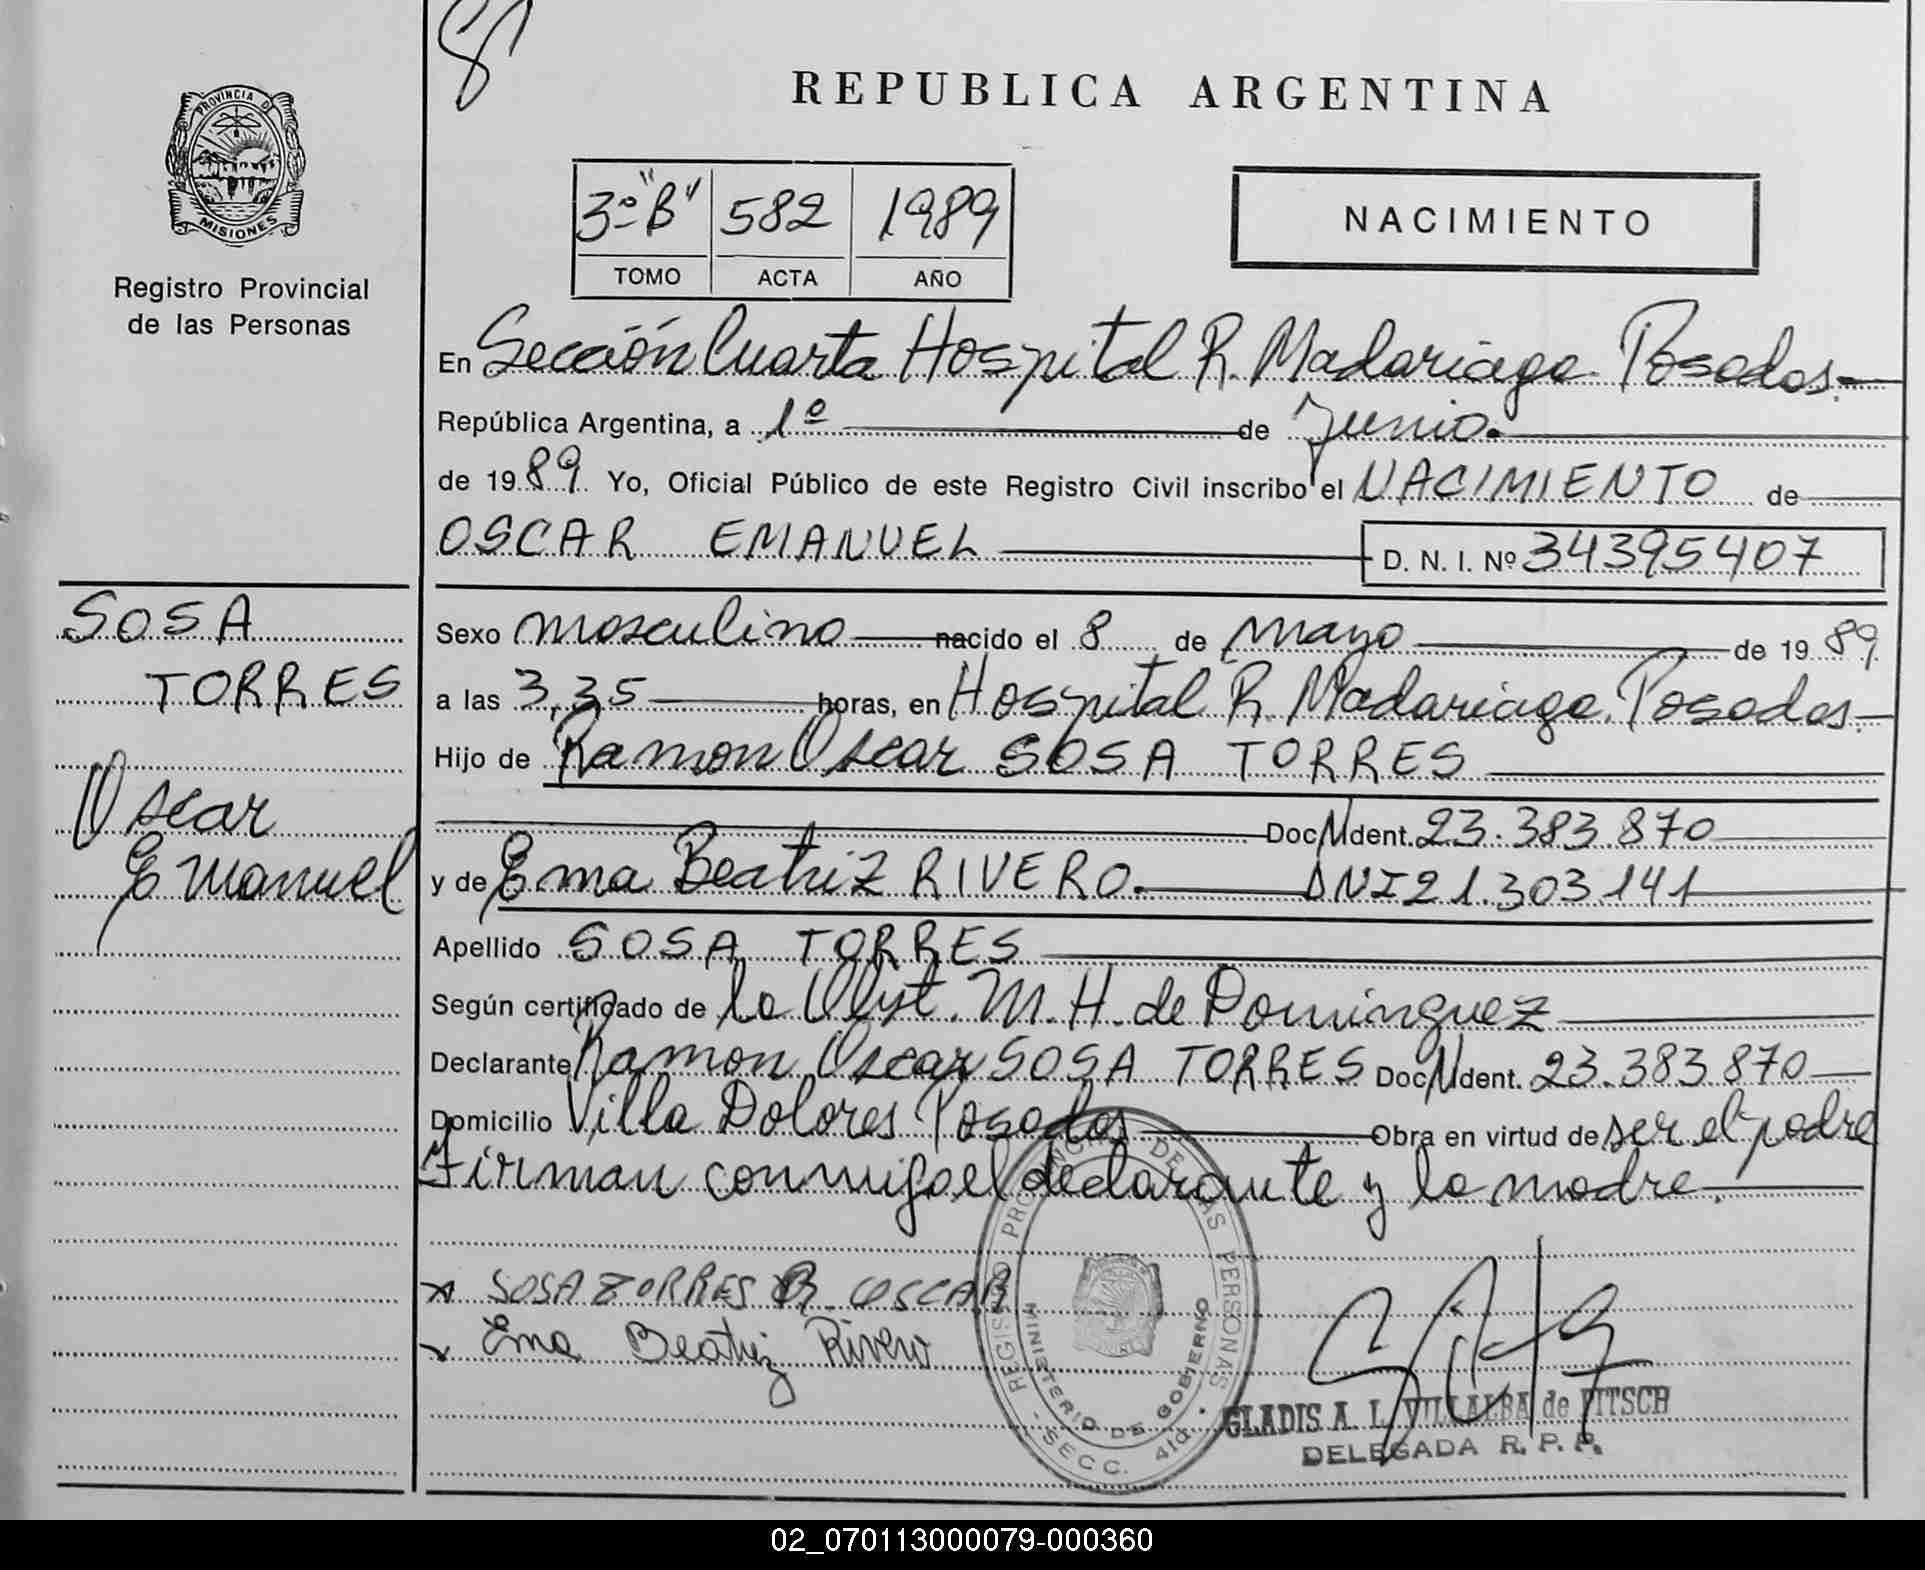 PROVINCIA DE
MISIONES
Registro Provincial
de las Personas
REPUBLICA ARGENTINA
3º "B" 582 1989
TOMO ACTA AÑO
NACIMIENTO
En Sección Cuarta Hospital R. Madariaga. Posadas.
República Argentina, a 1º de Junio.
de 1989 Yo, Oficial Público de este Registro Civil inscribo el NACIMIENTO de
OSCAR EMANUEL D. N. I. Nº 34395407
SOSA
TORRES
Oscar
Emanuel
Sexo masculino nacido el 8 de mayo de 1989
a las 3,35 horas, en Hospital R. Madariaga. Posadas.
Hijo de Ramon Oscar SOSA TORRES
Doc. Ident. 23.383.870
y de Ema Beatriz RIVERO. DNI 21.303.141
Apellido SOSA TORRES
Según certificado de la Obst. M. H. de Dominguez
Declarante Ramon Oscar SOSA TORRES Doc. Ident. 23.383.870
Domicilio Villa Dolores Posadas Obra en virtud de ser el padre
Firman conmigo el declarante y la madre.
SOSA TORRES R. OSCAR
Ema Beatriz Rivero
REGISTRO PROVINCIAL DE LAS PERSONAS
MINISTERIO DE GOBIERNO
SECC. 4ta.
GLADIS A. L. VILLALBA de FITSCH
DELEGADA R. P. P.
02_070113000079-000360